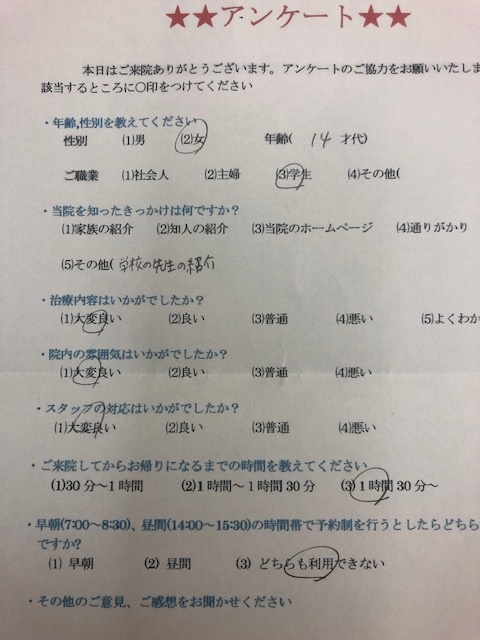 ★★アンケート★★
本日はご来院ありがとうございます。アンケートのご協力をお願いいたしま
該当するところに〇印をつけてください
・年齢,性別を教えてください
性別 (1)男 (2)女 年齢( 14 才代)
ご職業 (1)社会人 (2)主婦 (3)学生 (4)その他(
・当院を知ったきっかけは何ですか?
(1)家族の紹介 (2)知人の紹介 (3)当院のホームページ (4)通りがかり
(5)その他( 学校の先生の紹介
・治療内容はいかがでしたか?
(1)大変良い (2)良い (3)普通 (4)悪い (5)よくわか
・院内の雰囲気はいかがでしたか?
(1)大変良い (2)良い (3)普通 (4)悪い
・スタッフの対応はいかがでしたか?
(1)大変良い (2)良い (3)普通 (4)悪い
・ご来院してからお帰りになるまでの時間を教えてください
(1)30分～1時間 (2)1時間～1時間30分 (3)1時間30分～
・早朝(7:00～8:30)、昼間(14:00～15:30)の時間帯で予約制を行うとしたらどちら
ですか?
(1) 早朝 (2) 昼間 (3) どちらも利用できない
・その他のご意見、ご感想をお聞かせください